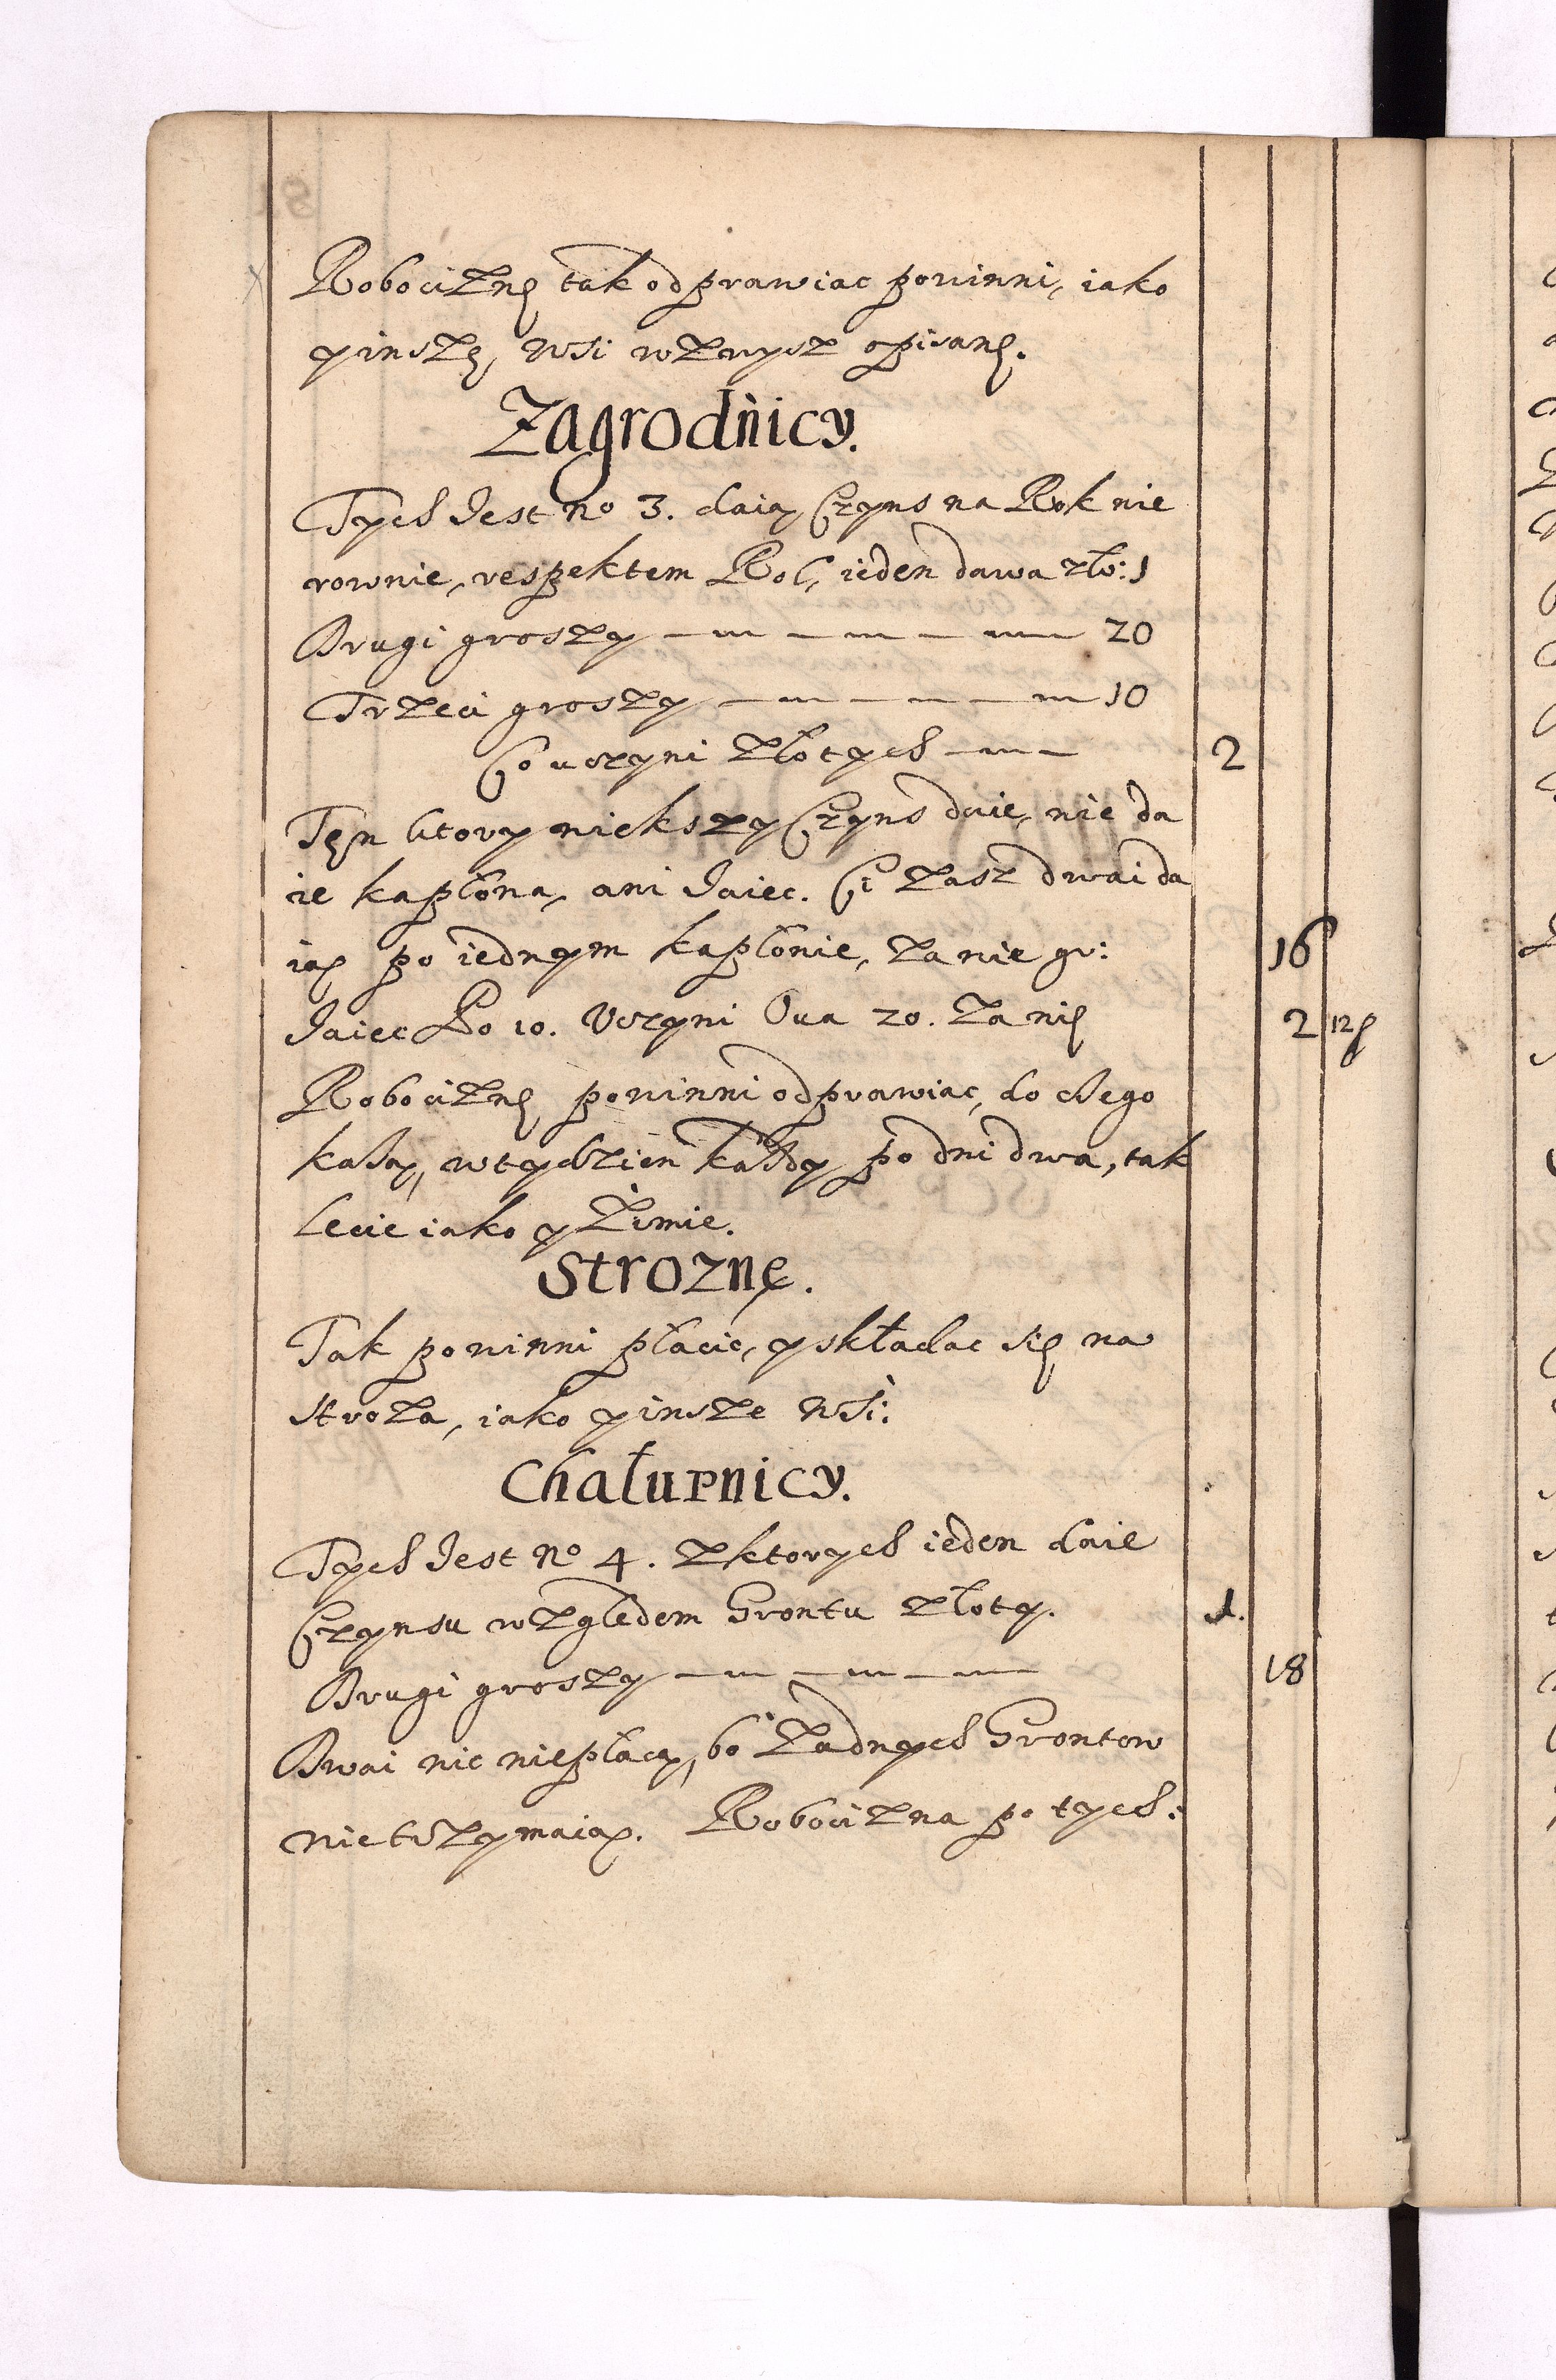 Robociznę tak odprawiac powinni, iako
yinszę, Wsi wzwysz opisanę.
Zagrodnicy.
Tych Iest No 3. daią Czyns na Rok nie
rownie, respektem Rol, ieden dawa zło: 1
Drugi groszy 20
Trzeci groszy 10
Co uczyni złotych 2
Tęn ktory wiekszy Czyns daie, nie da
ie kapłona, ani Iaiec. Ci zasz dwai da
ią po iednym kapłonie, za nie gr: 16
Iaiec Po 10. Uczyni Oua 20. za nię 2 12
Robociznę powinni odprawiac, do czego
każą, w tydzien każdy po dni dwa, tak
lecie iako y zimie.
Stroznę.
Tak powinni płacic, y składac się na
stroza, iako yinsze Wsi:
Chałupnicy.
Tych Iest No 4. z ktorych ieden daie
Czynsu względem Grontu złoty. 1.
Drugi groszy 18
Dwai nic niepłacą, bo zadnych Grontow
nietrzymaią. Robocizna po tych: